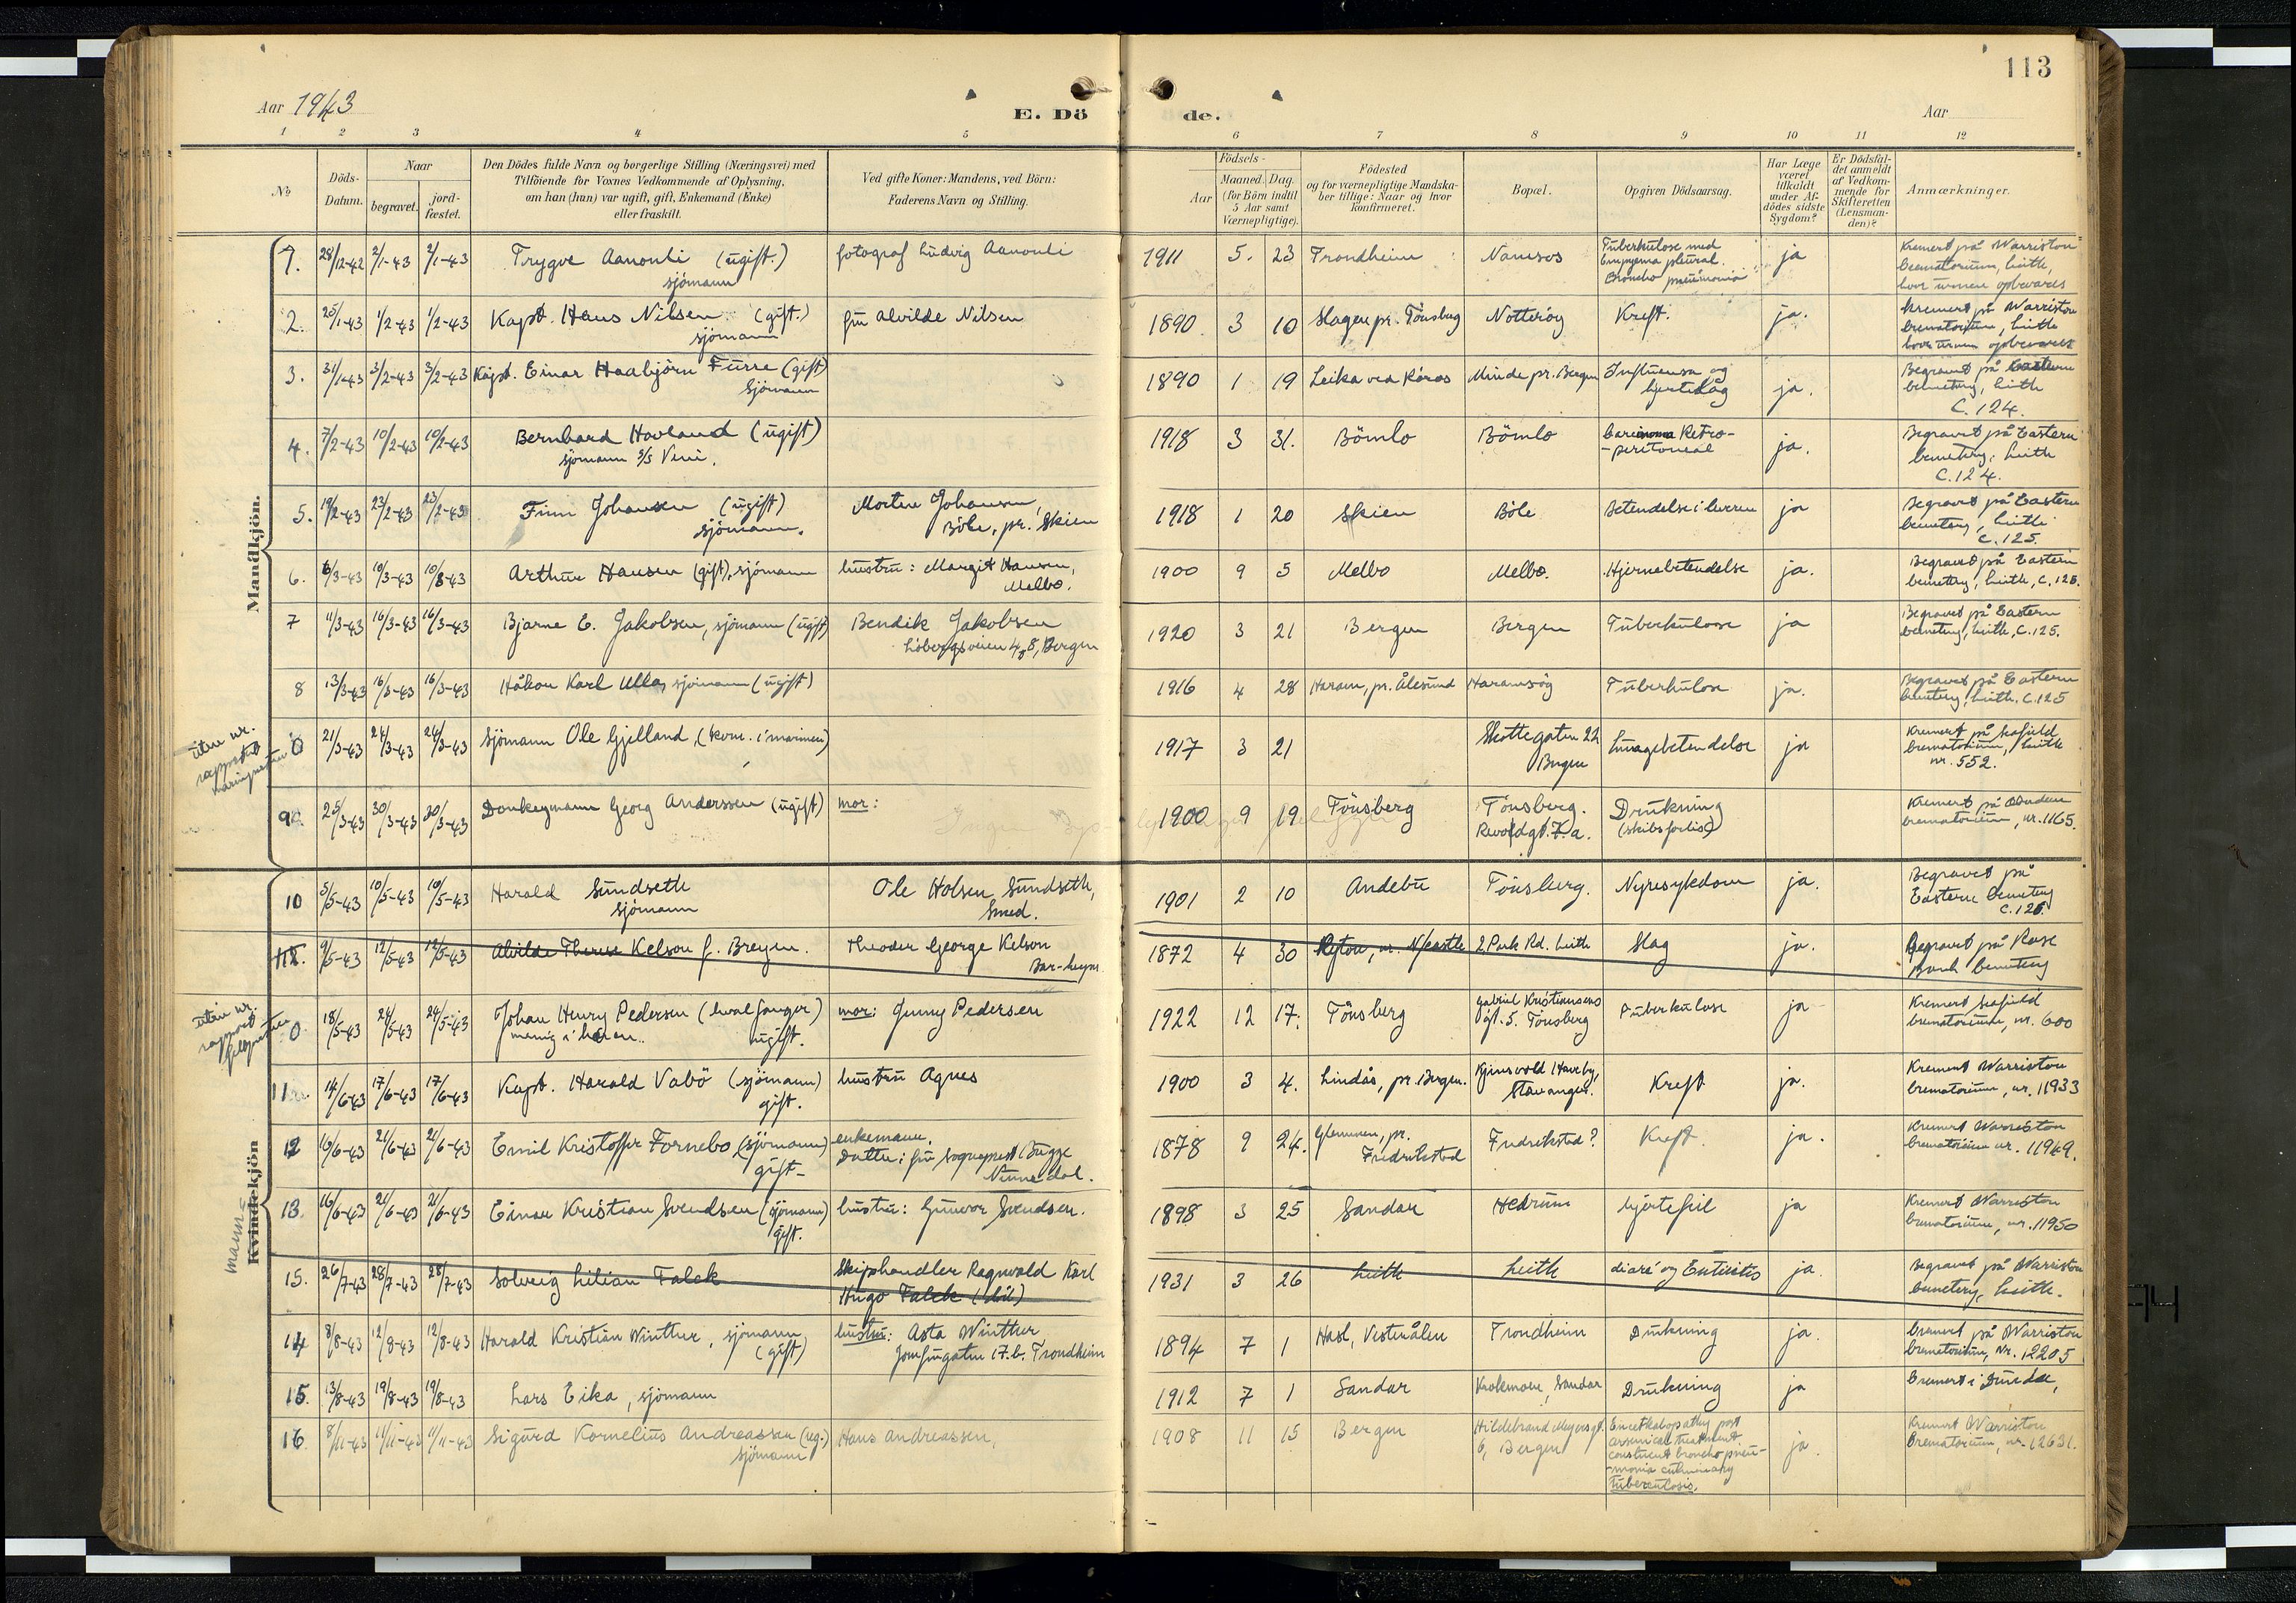 113
Aar 1943
E. Dö de.
Aar
1 2 3 4 5 6 7 8 9 10 11 12
No
Döds-Datum.
Naar
begravet.
jord-fæstet.
Den Dödes fulde Navn og borgerlige Stilling (Næringsvei) med
Tilföiende for Voxnes Vedkommende af Oplysning,
om han (hun) var ugift, gift, Enkemand (Enke)
eller fraskilt.
Ved gifte Koner: Mandens, ved Börn:
Faderens Navn og Stilling.
Födsels-
Aar
Maaned. Dag.
(for Börn indtil
5 Aar samt
Værnepligtige).
Födested
og for værnepligtige Mandska-
ber tillige: Naar og hvor
konfirmeret.
Bopæl.
Opgiven Dödsaarsag.
Har Læge
været
tilkaldt
under Af-
dödes sidste
Sygdom?
Er Dödsfal-
det anmeldt
af Vedkom-
mende for
Skifteretten
(Lensman-
den)?
Anmærkninger.
Mandkjön.
1. 28/12-42 2/1-43 2/1-43 Trygve Aanonli (ugift.) fotograf Ludvig Aanonli 1911 5. 23 Trondheim Namsos Tuberkulose med ja Kremert på Warriston
sjömann Empyema pleural. Crematorium, Leith,
Broncho pneumonia hvor urnen opbevares
2. 25/1-43 1/2-43 1/2-43 Kapt. Hans Nilsen (gift.) fru Alvilde Nilsen 1890 3 10 Slagen pr. Tönsberg Nötteröy Kreft. ja. Kremert på Warriston
sjömann Crematorium, Leith
hvor urnen opbevares
3. 31/1-43 3/2-43 3/2-43 Kapt. Einar Haabjörn Furre (gift) 1890 1 19 Leika ved Röros Minde pr. Bergen Influensa og ja. Begravet på Eastern
Sjömann hjerteslag Cemetery, Leith
C. 124.
4. 7/2-43 10/2-43 10/2-43 Bernhard Hovland (ugift) 1918 3 31. Bömlo Bömlo Carcinoma Retro- ja. Begravet på Eastern
sjömann s/s Veni. -peritoneal Cemetery, Leith
C. 124.
5. 19/2-43 23/2-43 23/2-43 Finn Johansen (ugift) Morten Johansen, 1918 1 20 Skien Böle Betendelse i lunen ja Begravet på Eastern
sjömann. Böle, pr. Skien Cemetery, Leith
C. 125.
6. 6/3-43 10/3-43 10/3-43 Arthur Hansen (gift), sjömann hustru: Margit Hansen, 1900 9 5 Melbo Melbo. Hjernebetendelse ja. Begravet på Eastern
Melbo. Cemetery, Leith, C. 125.
7 11/3-43 16/3-43 16/3-43 Bjarne E. Jakobsen, sjömann (ugift) Bendik Jakobsen 1920 3 21 Bergen Bergen Tuberkulose ja Begravet på Eastern
Bergen Cemetery, Leith, C. 125.
8 13/3-43 16/3-43 16/3-43 Håkon Karl Ulla, sjömann (ugift) 1916 4 28 Haram, pr. Ålesund Haramsöy Tuberkulose ja. Begravet på Eastern
Cemetery, Leith, C. 125
uten nr.
rapportert
marineprest
0 21/3-43 24/3-43 24/3-43 Sjömann Ole Gjelland, (kvm. i marinen) 1917 3 21 Skottegaten 22 Lungebetendelse ja Kremert på Seafield
Bergen Crematorium, Leith
nr. 552.
9 25/3-43 30/3-43 30/3-43 Donkeymann Georg Anderssen (ugift) mor: 1900 9 19 Tönsberg Tönsberg. Drukning Kremert på
(skibsforlis) Crematorium, nr. 1165.
10 5/5-43 10/5-43 10/5-43 Harald Sundseth Ole Holsen Sundseth, 1901 2 10 Andebu Tönsberg. Nyresykdom ja. Begravet på
sjömann Smed. Eastern Cemetery
C. 126.
9/5-43 12/5-43 12/5-43 Alvilde Therese Kelson f. Breyen. Theodor George Kelson 1872 4 30 Ryton, nr. N/castle 2 Park Rd. Leith Slag ja. Begravet på Rose
bank Cemetery
uten nr.
rapport
feltprest
0 18/5-43 24/5-43 24/5-43 Johan Henry Pedersen (hvalfanger) mor: Jenny Pedersen 1922 12 17. Tönsberg Gabriel Kristiansens Tuberkulose ja Kremert Seafield
menig i hæren. ugift. gt. 5. Tönsberg Crematorium, nr. 600
11 14/6-43 17/6-43 17/6-43 Kapt. Harald Vabö (sjömann) hustru Agnes 1900 3 4. Lindås, pr. Bergen. Haveby, Kreft ja. Kremert Warriston
gift. Stavanger. Crematorium, nr. 11933
mann-
Kvindekjön
12 16/6-43 21/6-43 21/6-43 Emil Kristoffer Fornebo (sjömann) enkemann. 1878 9 24. Glemmen, pr. Fredrikstad? Kreft. ja. Kremert Warriston
gift- Datter: fru sogneprest Bugge Fredrikstad Crematorium nr. 11949.
13. 16/6-43 21/6-43 21/6-43 Einar Kristian Svendsen (sjömann) hustru: Gunvor Svendsen. 1898 3 25 Sandar Hedrum hjertefeil ja Kremert Warriston
gift. Crematorium, nr. 11950
15. 26/7-43 28/7-43 28/7-43 Solveig Lilian Falck Skipshandler Ragnvald Karl 1931 3 26 Leith Leith diaré og Enteritis ja. Begravet på Warriston
Hugo Falck Cemetery, Leith.
14 8/8-43 12/8-43 12/8-43 Harald Kristian Winther, sjömann hustru: Asta Winther 1894 7 1 Hasl, Vesterålen Trondheim Drukning ja. Cremert på Warriston
(gift) Jomfrugaten 17.b. Trondheim Crematorium, Nr. 12205
15. 13/8-43 19/8-43 19/8-43 Lars Eika, sjömann 1912 7 1 Sandar Krokemoen, Sandar Drukning ja Cremert i Dundee,
16 8/11-43 11/11-43 11/11-43 Sigurd Kornelius Andreassen (ug.) Hans Andreassen, 1908 11 15 Bergen Hildebrand Meyersgt. Encethalopathy post ja. Kremert Warriston
sjömann 6, Bergen arsenical treatment Crematorium, nr. 12631.
broncho pneu-
-monia
Tuberculosis.